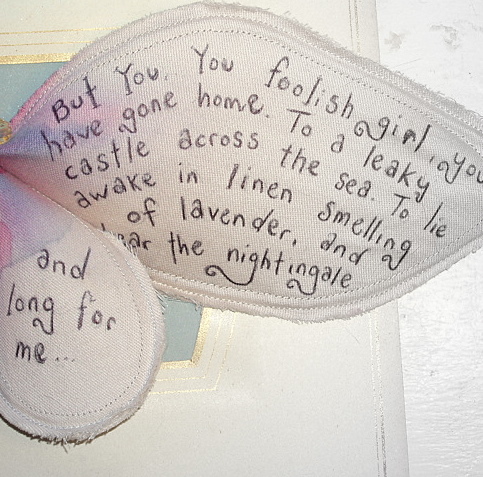 But You. You foolish girl, you
have gone home. To a leaky
castle across the sea. To lie
awake in linen smelling
of lavender, and
hear the nightingale
and
long for
me...